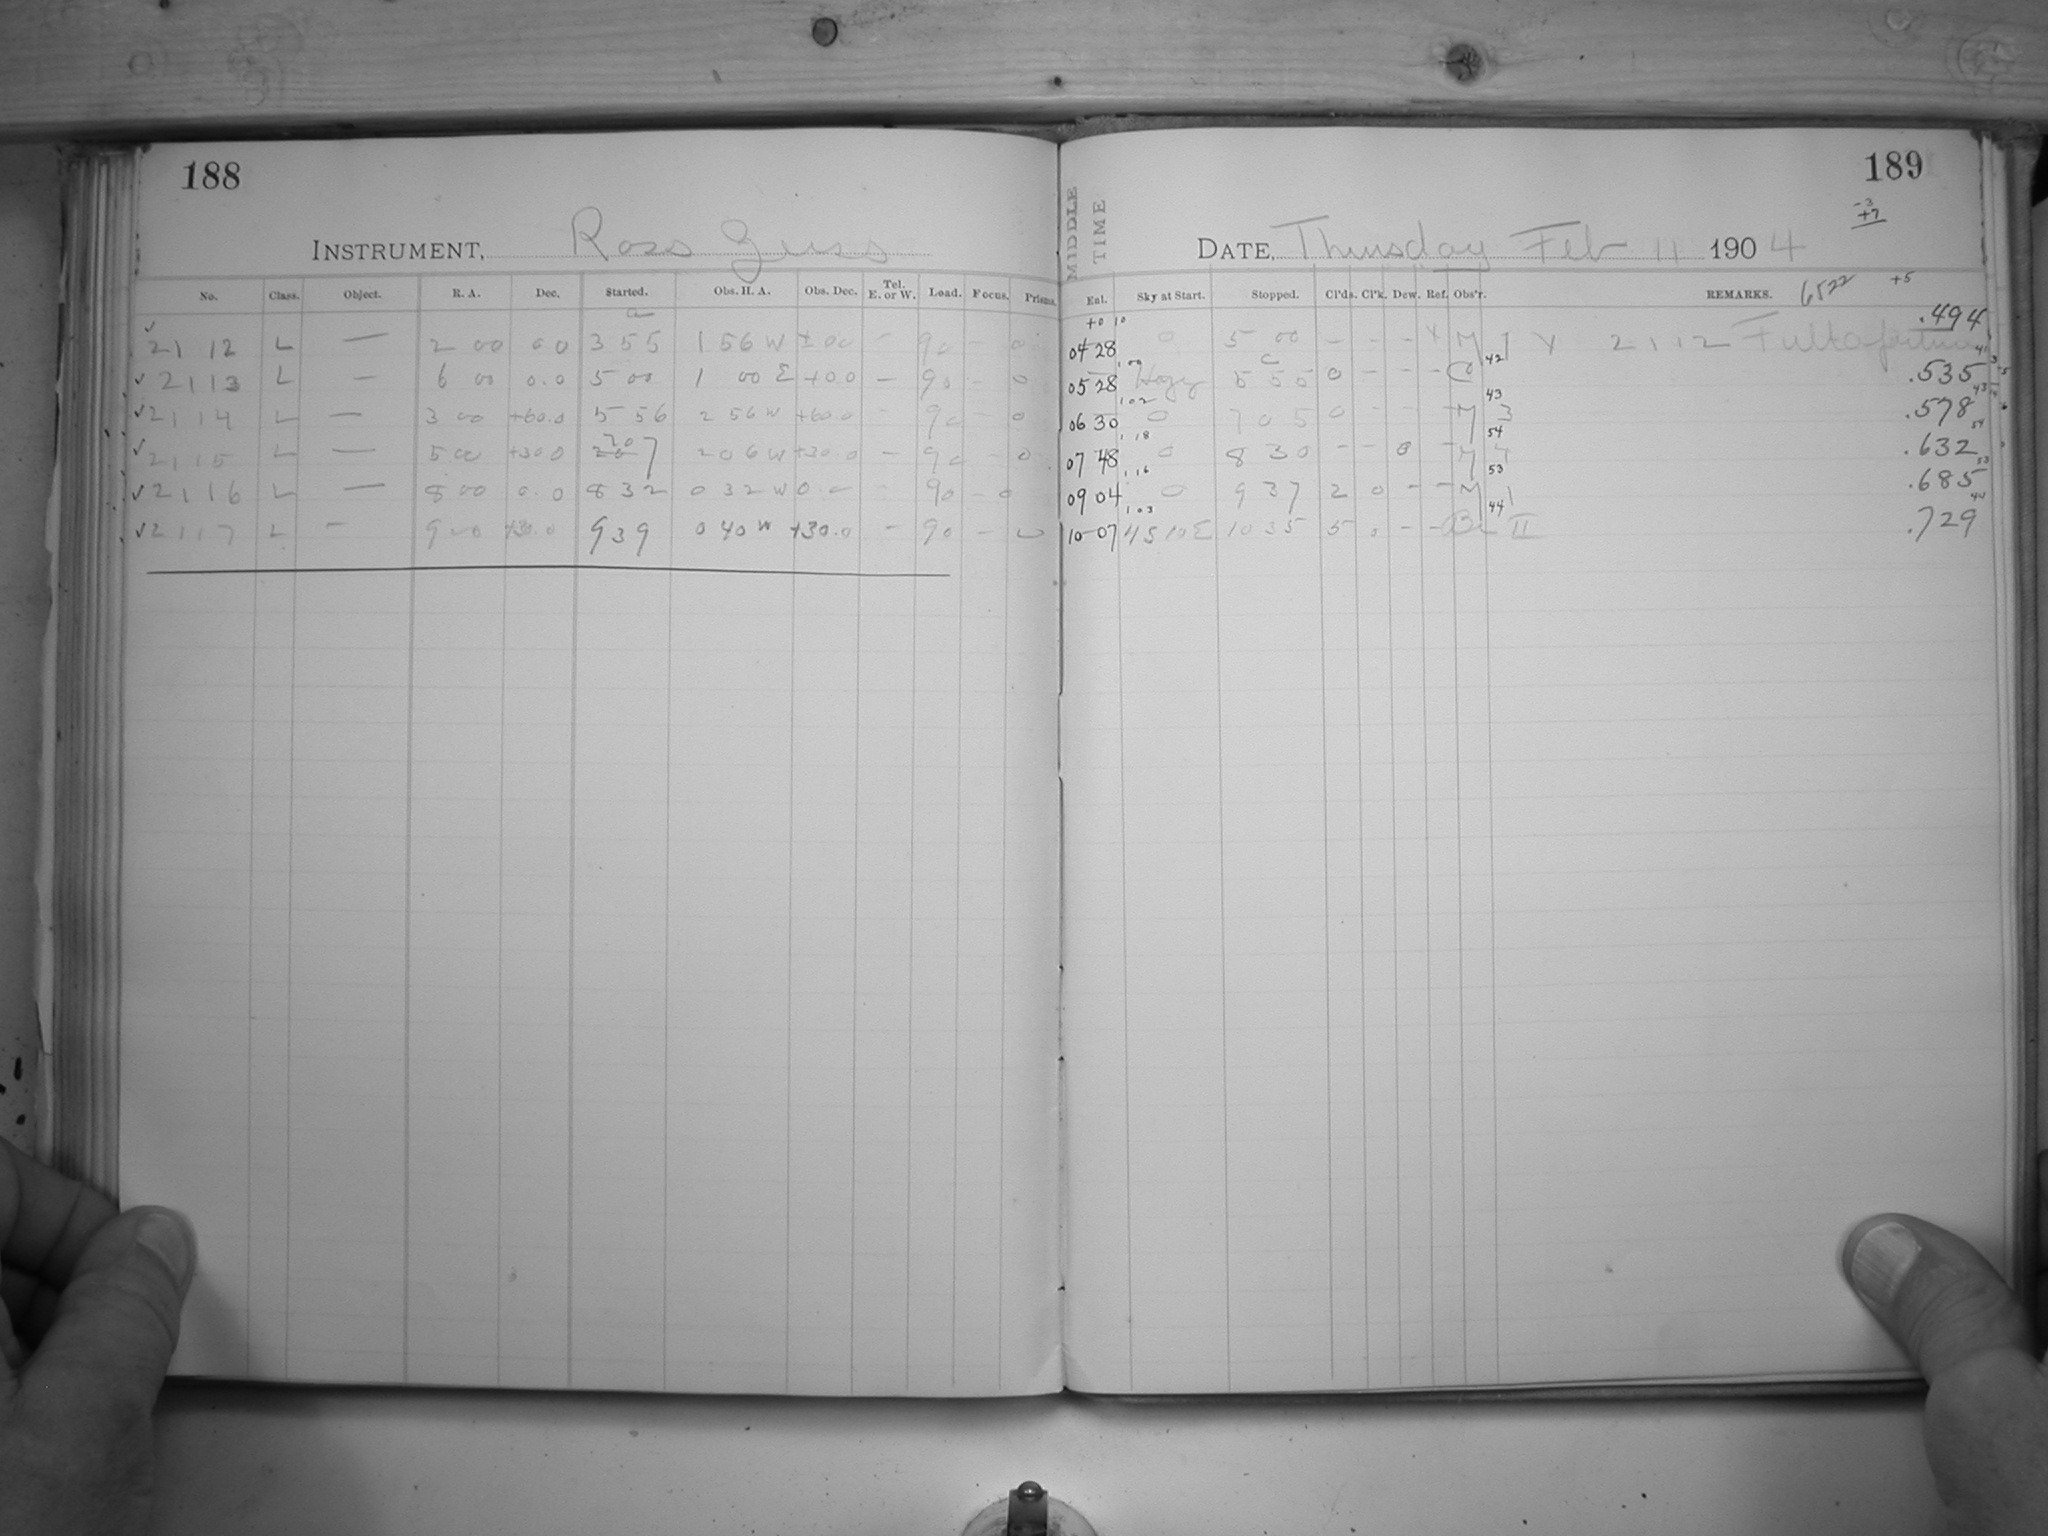 188
INSTRUMENT, Ross
No. Class. Object. R. A. Dec. Started. Obs. H. A. Obs. Dec. Tel. E. or W. Load. Focus. Prisms.
2112 L — 2 00 0 0 3 55 1 56 W ±00 — 90 — 0
2113 L — 6 00 0.0 5 00 1 00 E +0.0 — 90 — 0
2114 L — 3 00 +60.0 5 56 2 56 W +60.0 — 90 — 0
2115 L — 5 00 +30.0 7 2 06 W +30.0 — 90 — 0
2116 L — 8 00 0.0 8 32 0 32 W 0. — 90 — 0
2117 L — 9 00 +30.0 9 39 0 40 W +30.0 — 90 — 0
MIDDLE TIME
189
-3
+7
DATE, Thursday Feb 11 1904
6522 +5
Enl. Sky at Start. Stopped. Cl'ds. Cl'k. Dew. Ref. Obs'r. REMARKS.
+0 10
04 28 0 5 00 — — — Y M 1 Y 2112 .494
05 28 Hazy 5 55 0 — — — C .535
06 30 0 7 05 0 — — — M 3 .578
07 48 0 8 30 — — 0 — M 4 .632
09 04 0 9 37 2 0 — — M 1 .685
10 07 10 35 5 0 — — II .729
42
43
54
53
44